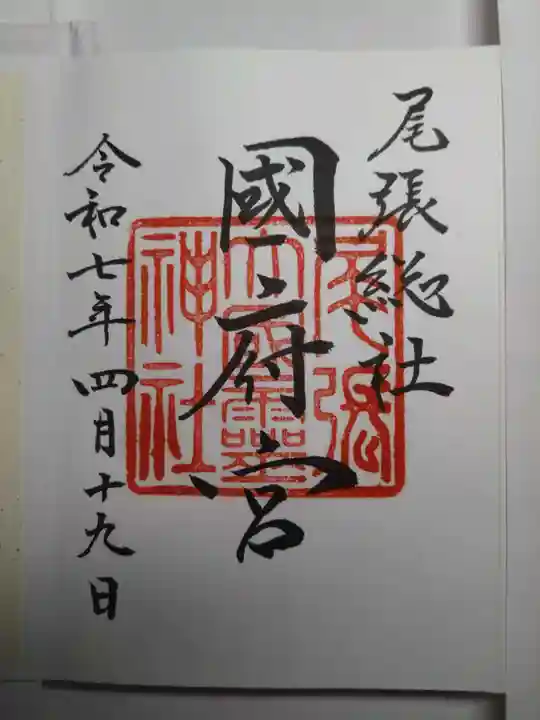 尾張総社
國府宮
尾張大國霊神社
令和七年四月十九日